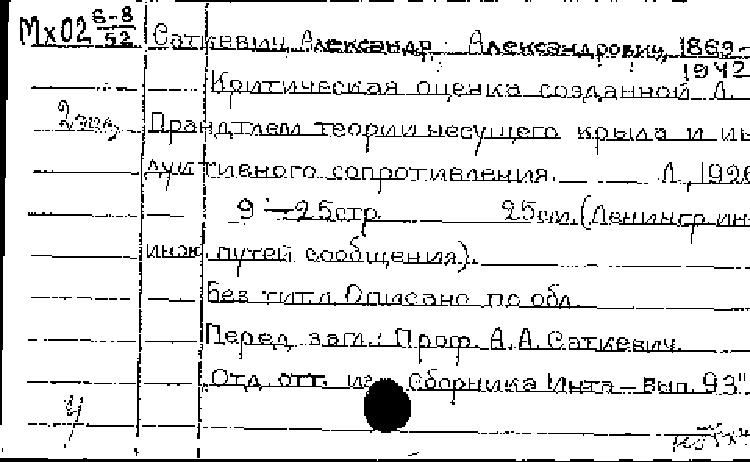 Мх02 6-8/52 Саткевич, Александр Александрович, 1869-
1942
Критическая оценка созданной Л.
2 экз. Прандтлем теории несущего крыла и ин-
дуктивного сопротивления. Л., 1926
9-25 стр. 25 см. (Ленингр. ин-
инж. путей сообщения).
Без тит. л. Описано по обл.
Перед загл.: Проф. А.А. Саткевич.
Отд. отт. из Сборника Ин-та - вып. 93"